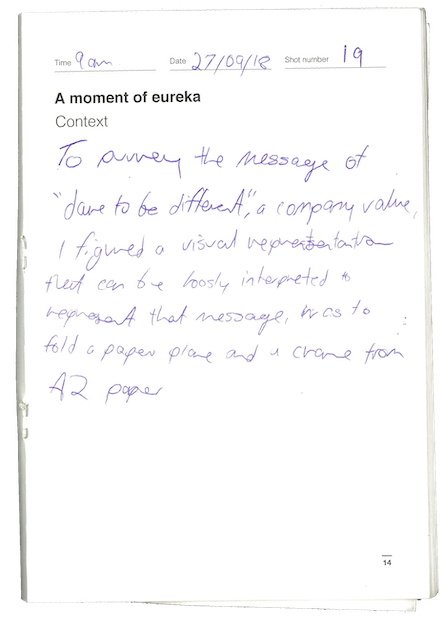 Time 9am Date 27/09/18 Shot number 19
A moment of eureka
Context
To the message of
"dare to be different", a company value,
I figured a visual representation
that can be loosly interpreted to
represent that message, was to
fold a paper plane and a crane from
A2 paper
14